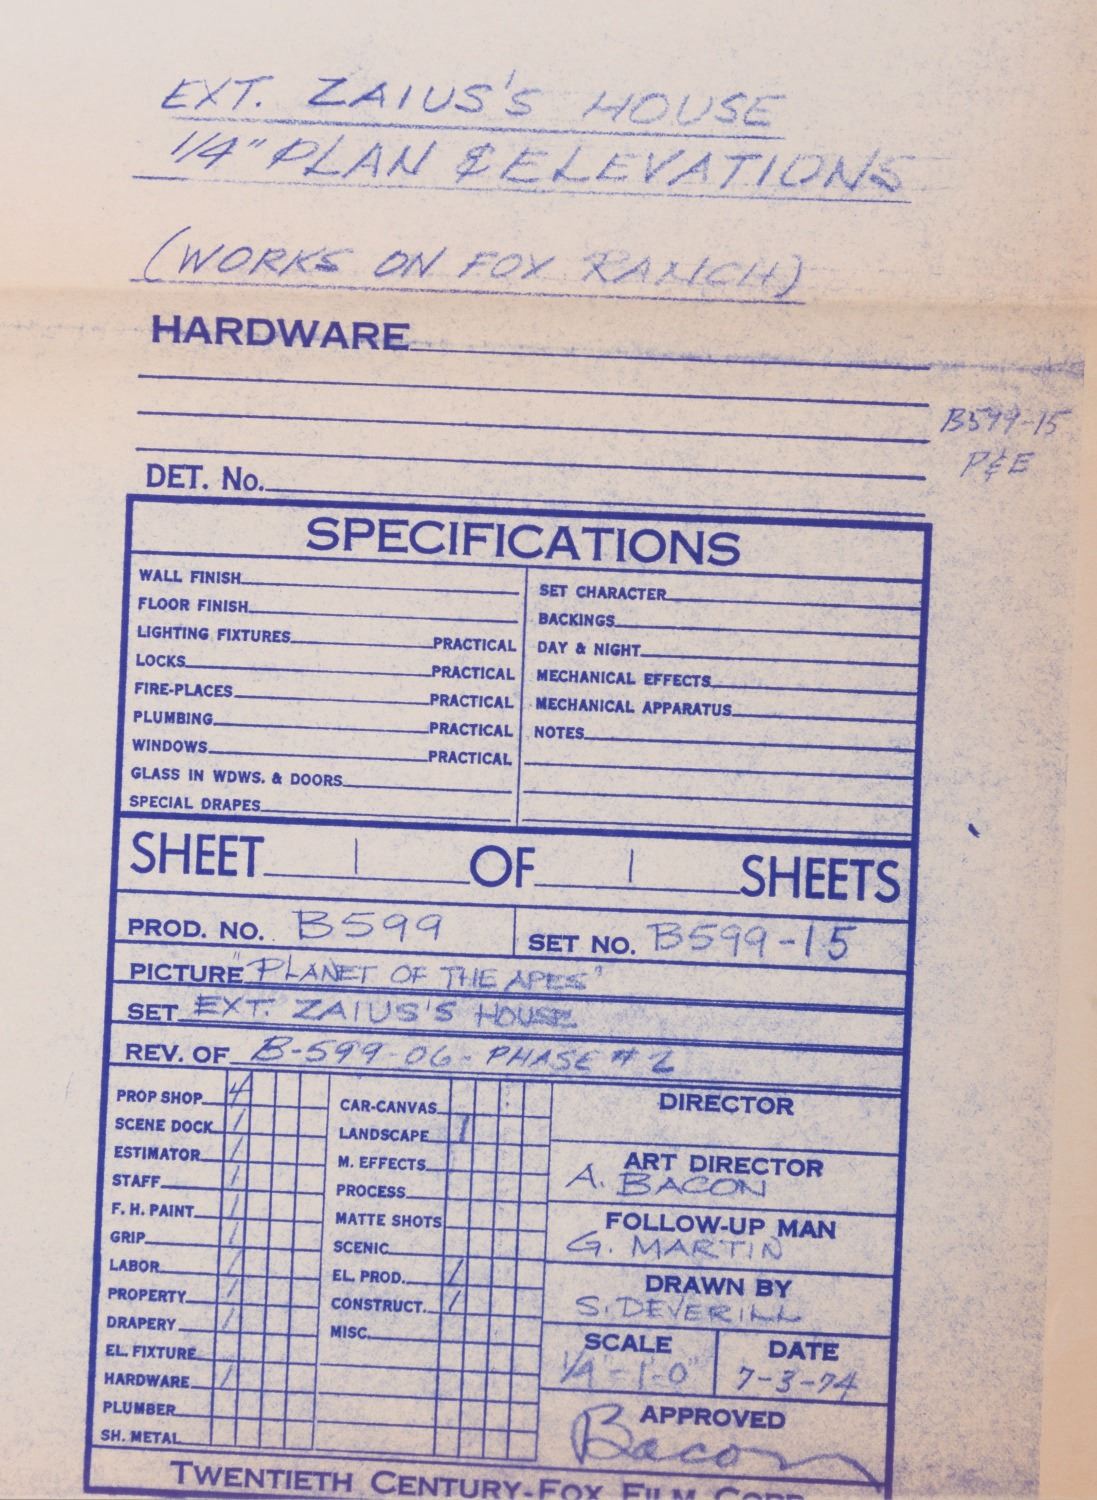 EXT. ZAIUS'S HOUSE
1/4" PLAN & ELEVATIONS
(WORKS ON FOX RANCH)
HARDWARE
B599-15
P&E
DET. No.
SPECIFICATIONS
WALL FINISH
FLOOR FINISH
LIGHTING FIXTURES PRACTICAL
LOCKS PRACTICAL
FIRE-PLACES PRACTICAL
PLUMBING PRACTICAL
WINDOWS PRACTICAL
GLASS IN WDWS. & DOORS
SPECIAL DRAPES
SET CHARACTER
BACKINGS
DAY & NIGHT
MECHANICAL EFFECTS
MECHANICAL APPARATUS
NOTES
SHEET 1 OF 1 SHEETS
PROD. NO. B599 SET NO. B599-15
PICTURE "PLANET OF THE APES"
SET EXT. ZAIUS'S HOUSE
REV. OF B-599-06-PHASE #2
PROP SHOP 4
SCENE DOCK 1
ESTIMATOR 1
STAFF 1
F. H. PAINT 1
GRIP 1
LABOR 1
PROPERTY 1
DRAPERY 1
EL. FIXTURE
HARDWARE 1
PLUMBER
SH. METAL
CAR-CANVAS
LANDSCAPE 1
M. EFFECTS
PROCESS
MATTE SHOTS
SCENIC
EL. PROD. 1
CONSTRUCT. 1
MISC.
DIRECTOR
ART DIRECTOR
A. BACON
FOLLOW-UP MAN
G. MARTIN
DRAWN BY
S. DEVERILL
SCALE DATE
1/4"-1'-0" 7-3-74
APPROVED
Bacon
TWENTIETH CENTURY-FOX FILM CORP.